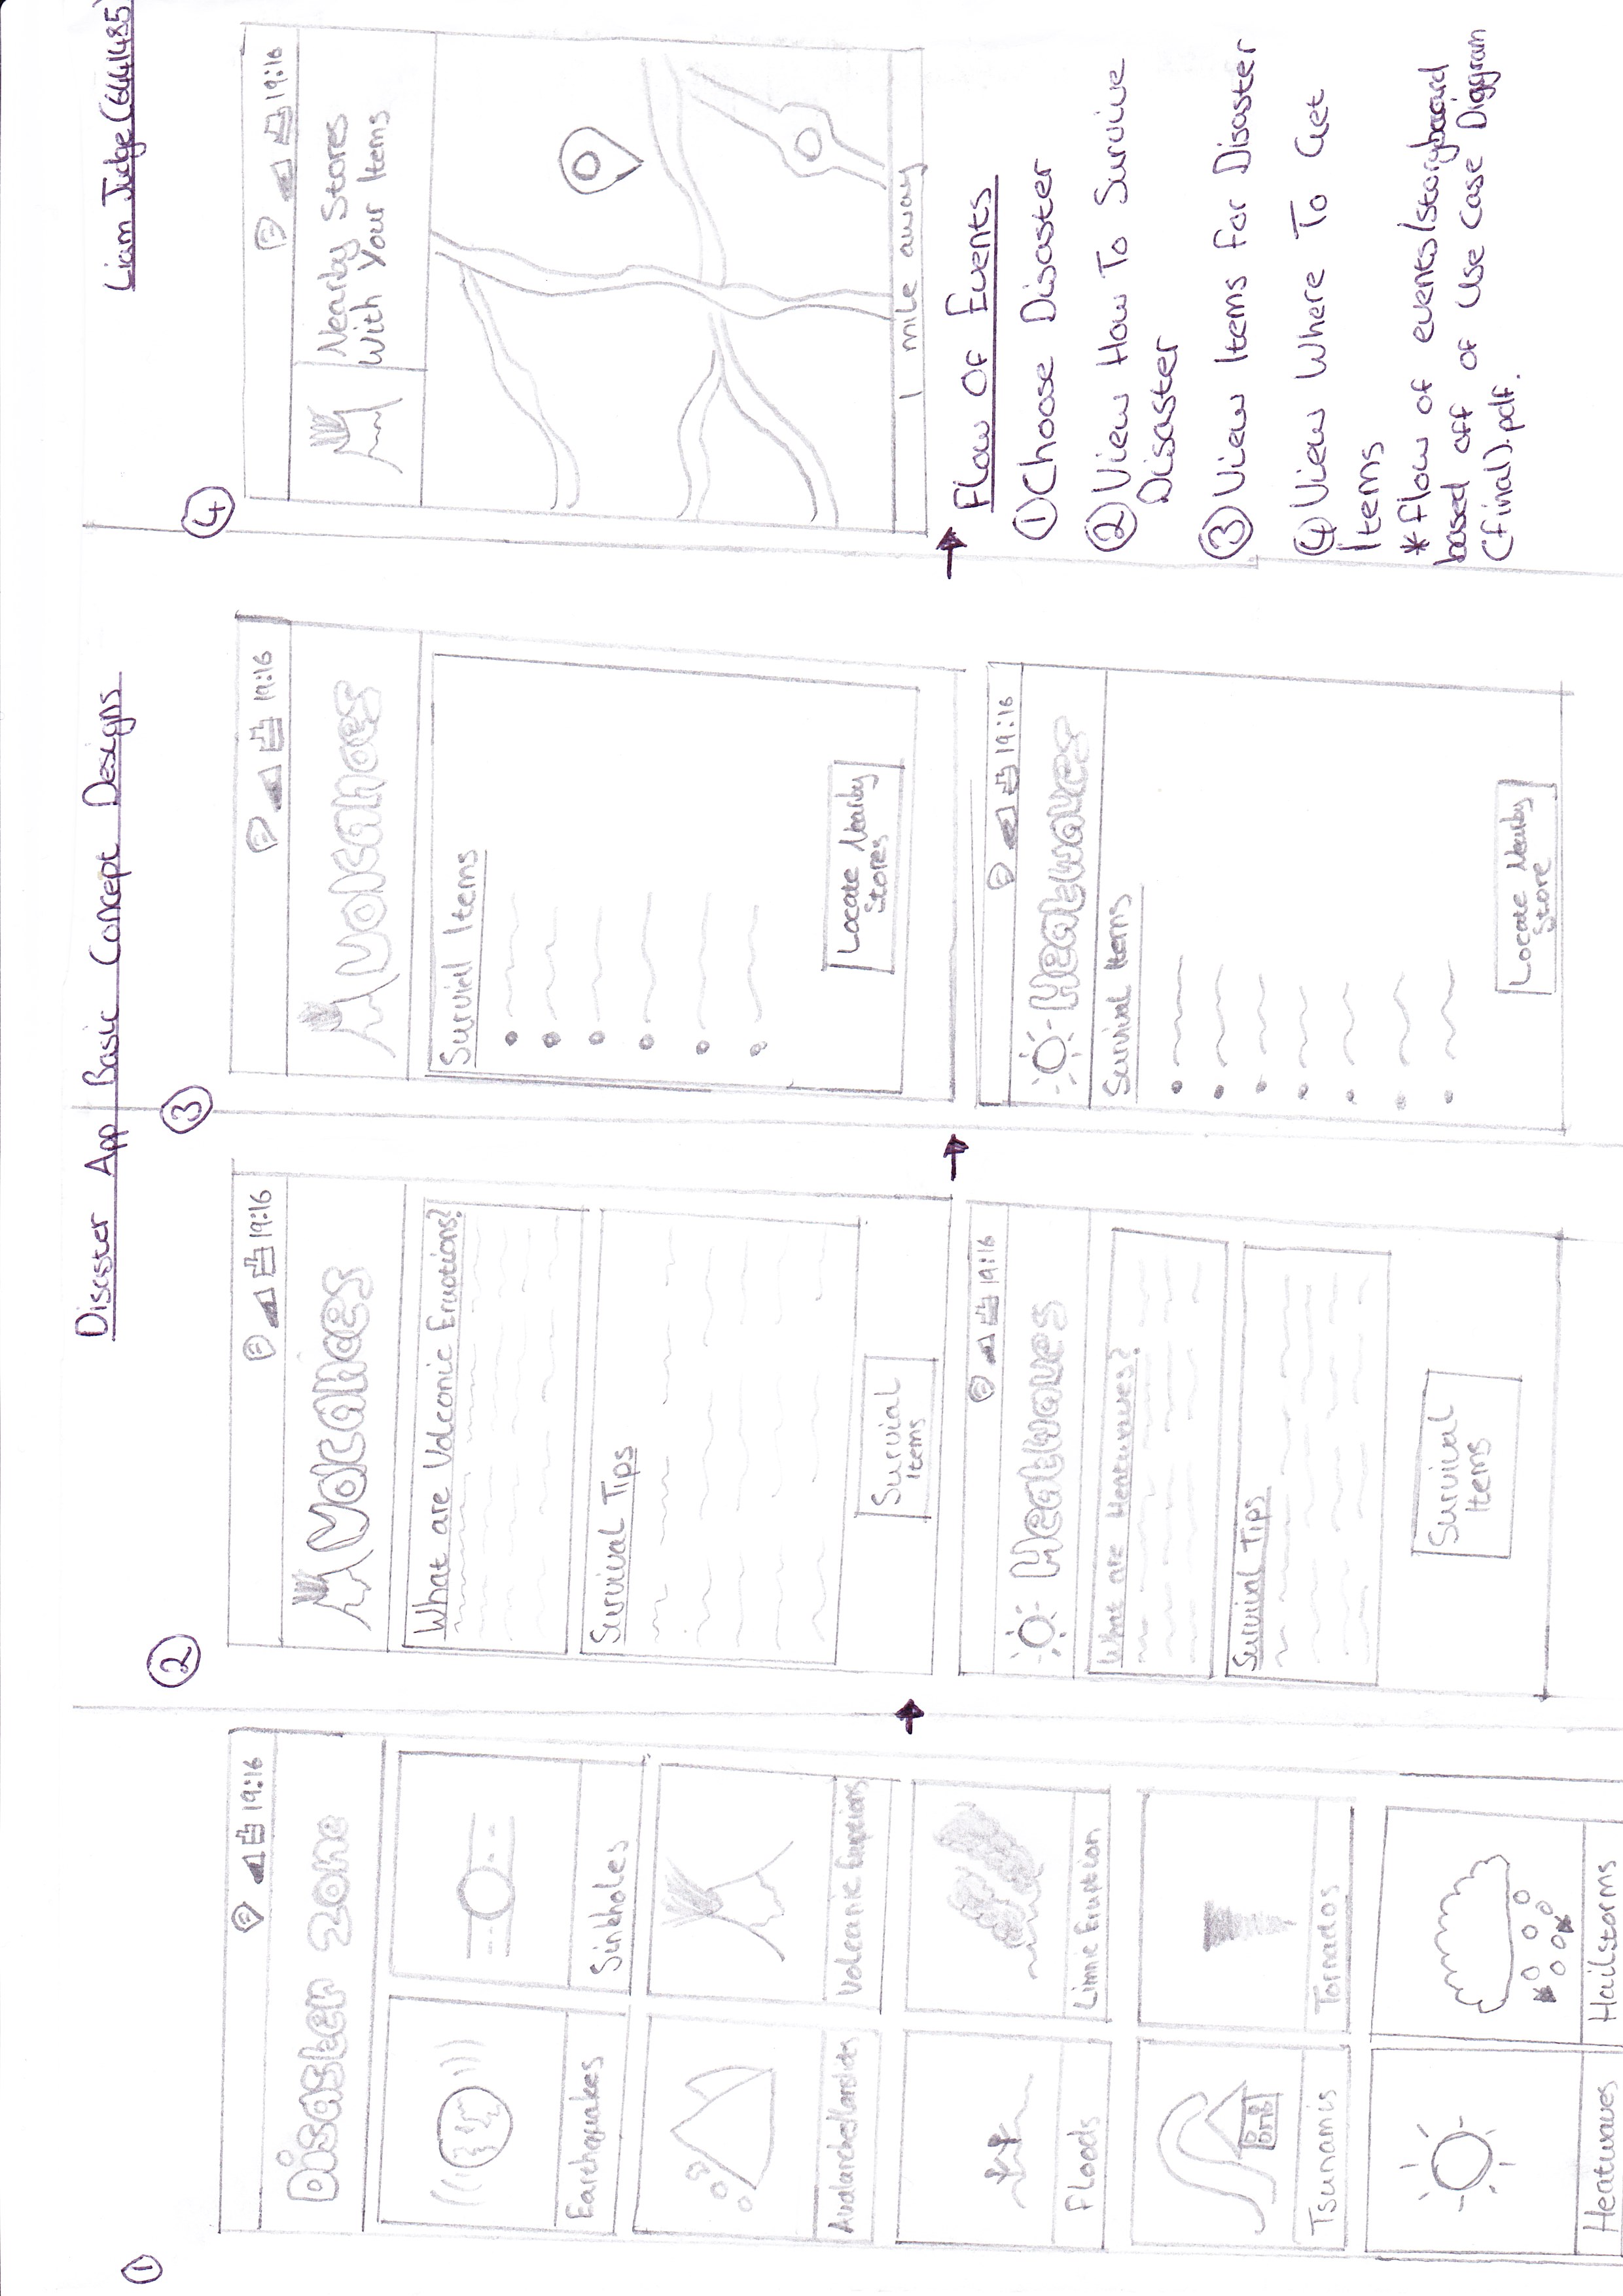 Disaster App Basic Concept Designs
Liam Judge (644485)
1
19:16
Disaster Zone
Earthquakes
Sinkholes
Avalanches/Landslides
Volcanic Eruptions
Floods
Limnic Eruption
Tsunamis
Tornados
Heatwaves
Hailstorms
2
19:16
Volcanoes
What are Volconic Eruptions?
Survival Tips
Survial
Items
19:16
Heatwaves
What are Heatwaves?
Survival Tips
Survival
Items
3
19:16
Volcanoes
Survial Items
Locate Nearby
Stores
19:16
Heatwaves
Survival Items
Locate Nearby
Store
4
19:16
Nearby Stores
With Your Items
1 mile away
Flow Of Events
1 Choose Disaster
2 View How To Survive
Disaster
3 View Items For Disaster
4 View Where To Get
Items
* Flow of events/storyboard
based off of Use Case Diagram
(final).pdf.